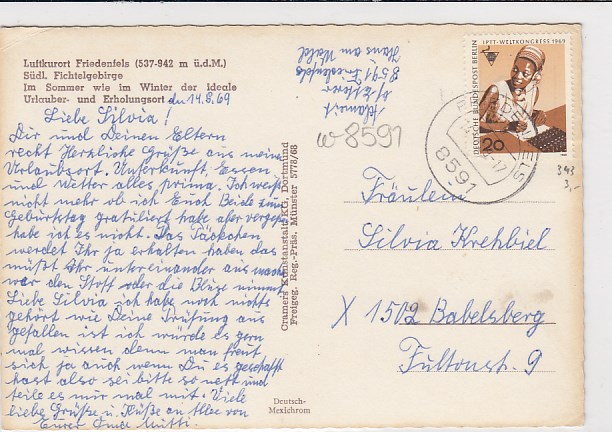 Luftkurort Friedenfels (537-942 m ü.d.M.)
Südl. Fichtelgebirge
Im Sommer wie im Winter der ideale
Urlauber- und Erholungsort
den 14.8.69
Liebe Silvia!
Dir und Deinen Eltern
recht Herzliche Grüße aus meinem
Urlaubsort. Unterkunft, Essen
und Wetter alles prima. Ich weiß
nicht mehr ob ich Euch Beide zum
Geburtstag gratuliert habe aber vergessen
habe ich es nicht. Das Päckchen
werdet Ihr ja erhalten haben das
müßt Ihr untereinander aus
war den Stoff oder die Bluse nimmt
Liebe Silvia ich habe noch nichts
gehört wie Deine Prüfung aus
gefallen ist ich würde es gern
mal wissen denn man freut
sich ja auch wenn Du es geschafft
hast also sei bitte so nett und
teile es mir mal mit. Viele
liebe Grüße u. Küße an Alle von
Eurer Oma Mutti.
8591 Friedenfels
Haus am Wald
W 8591
Cramers Kunstanstalt KG, Dortmund
Freigeg. Reg.-Präs. Münster 5773/68
Deutsch-
Mexichrom
IPTT-WELTKONGRESS 1969
DEUTSCHE BUNDESPOST BERLIN
20
FRIEDENFELS
8591
343
3,-
Fräulein
Silvia Krehbiel
X 1502 Babelsberg
Fultonstr. 9